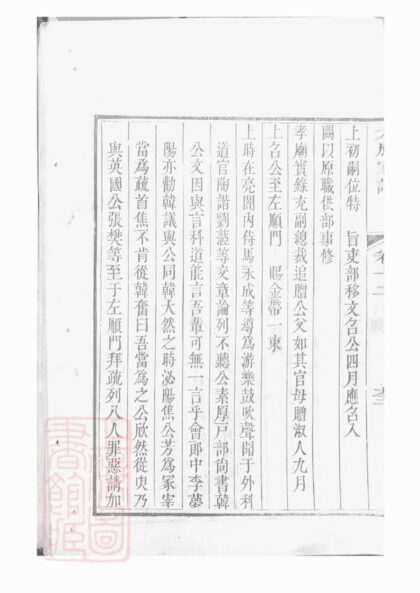 上初嗣位特　旨吏部移文召公四月應召入
闕以原職供部事修
孝廟實錄充副總裁追贈公父如其官母贈淑人九月
上召公至左順門　賜金帶一束
上時在亮闇內侍馬永成等導為游樂鼓吹聲聞于外科
道官陶諧劉蒞等交章論列不聽公素厚戶部尚書韓
公文因與言科道能言吾輩可無一言乎會郎中李夢
陽亦勸韓議與公同韓大然之時泌陽焦公芳為冢宰
當為疏首焦不肯從韓奮曰吾當為之公欣然從臾乃
與英國公張懋等至于左順門拜疏列八人罪惡請加